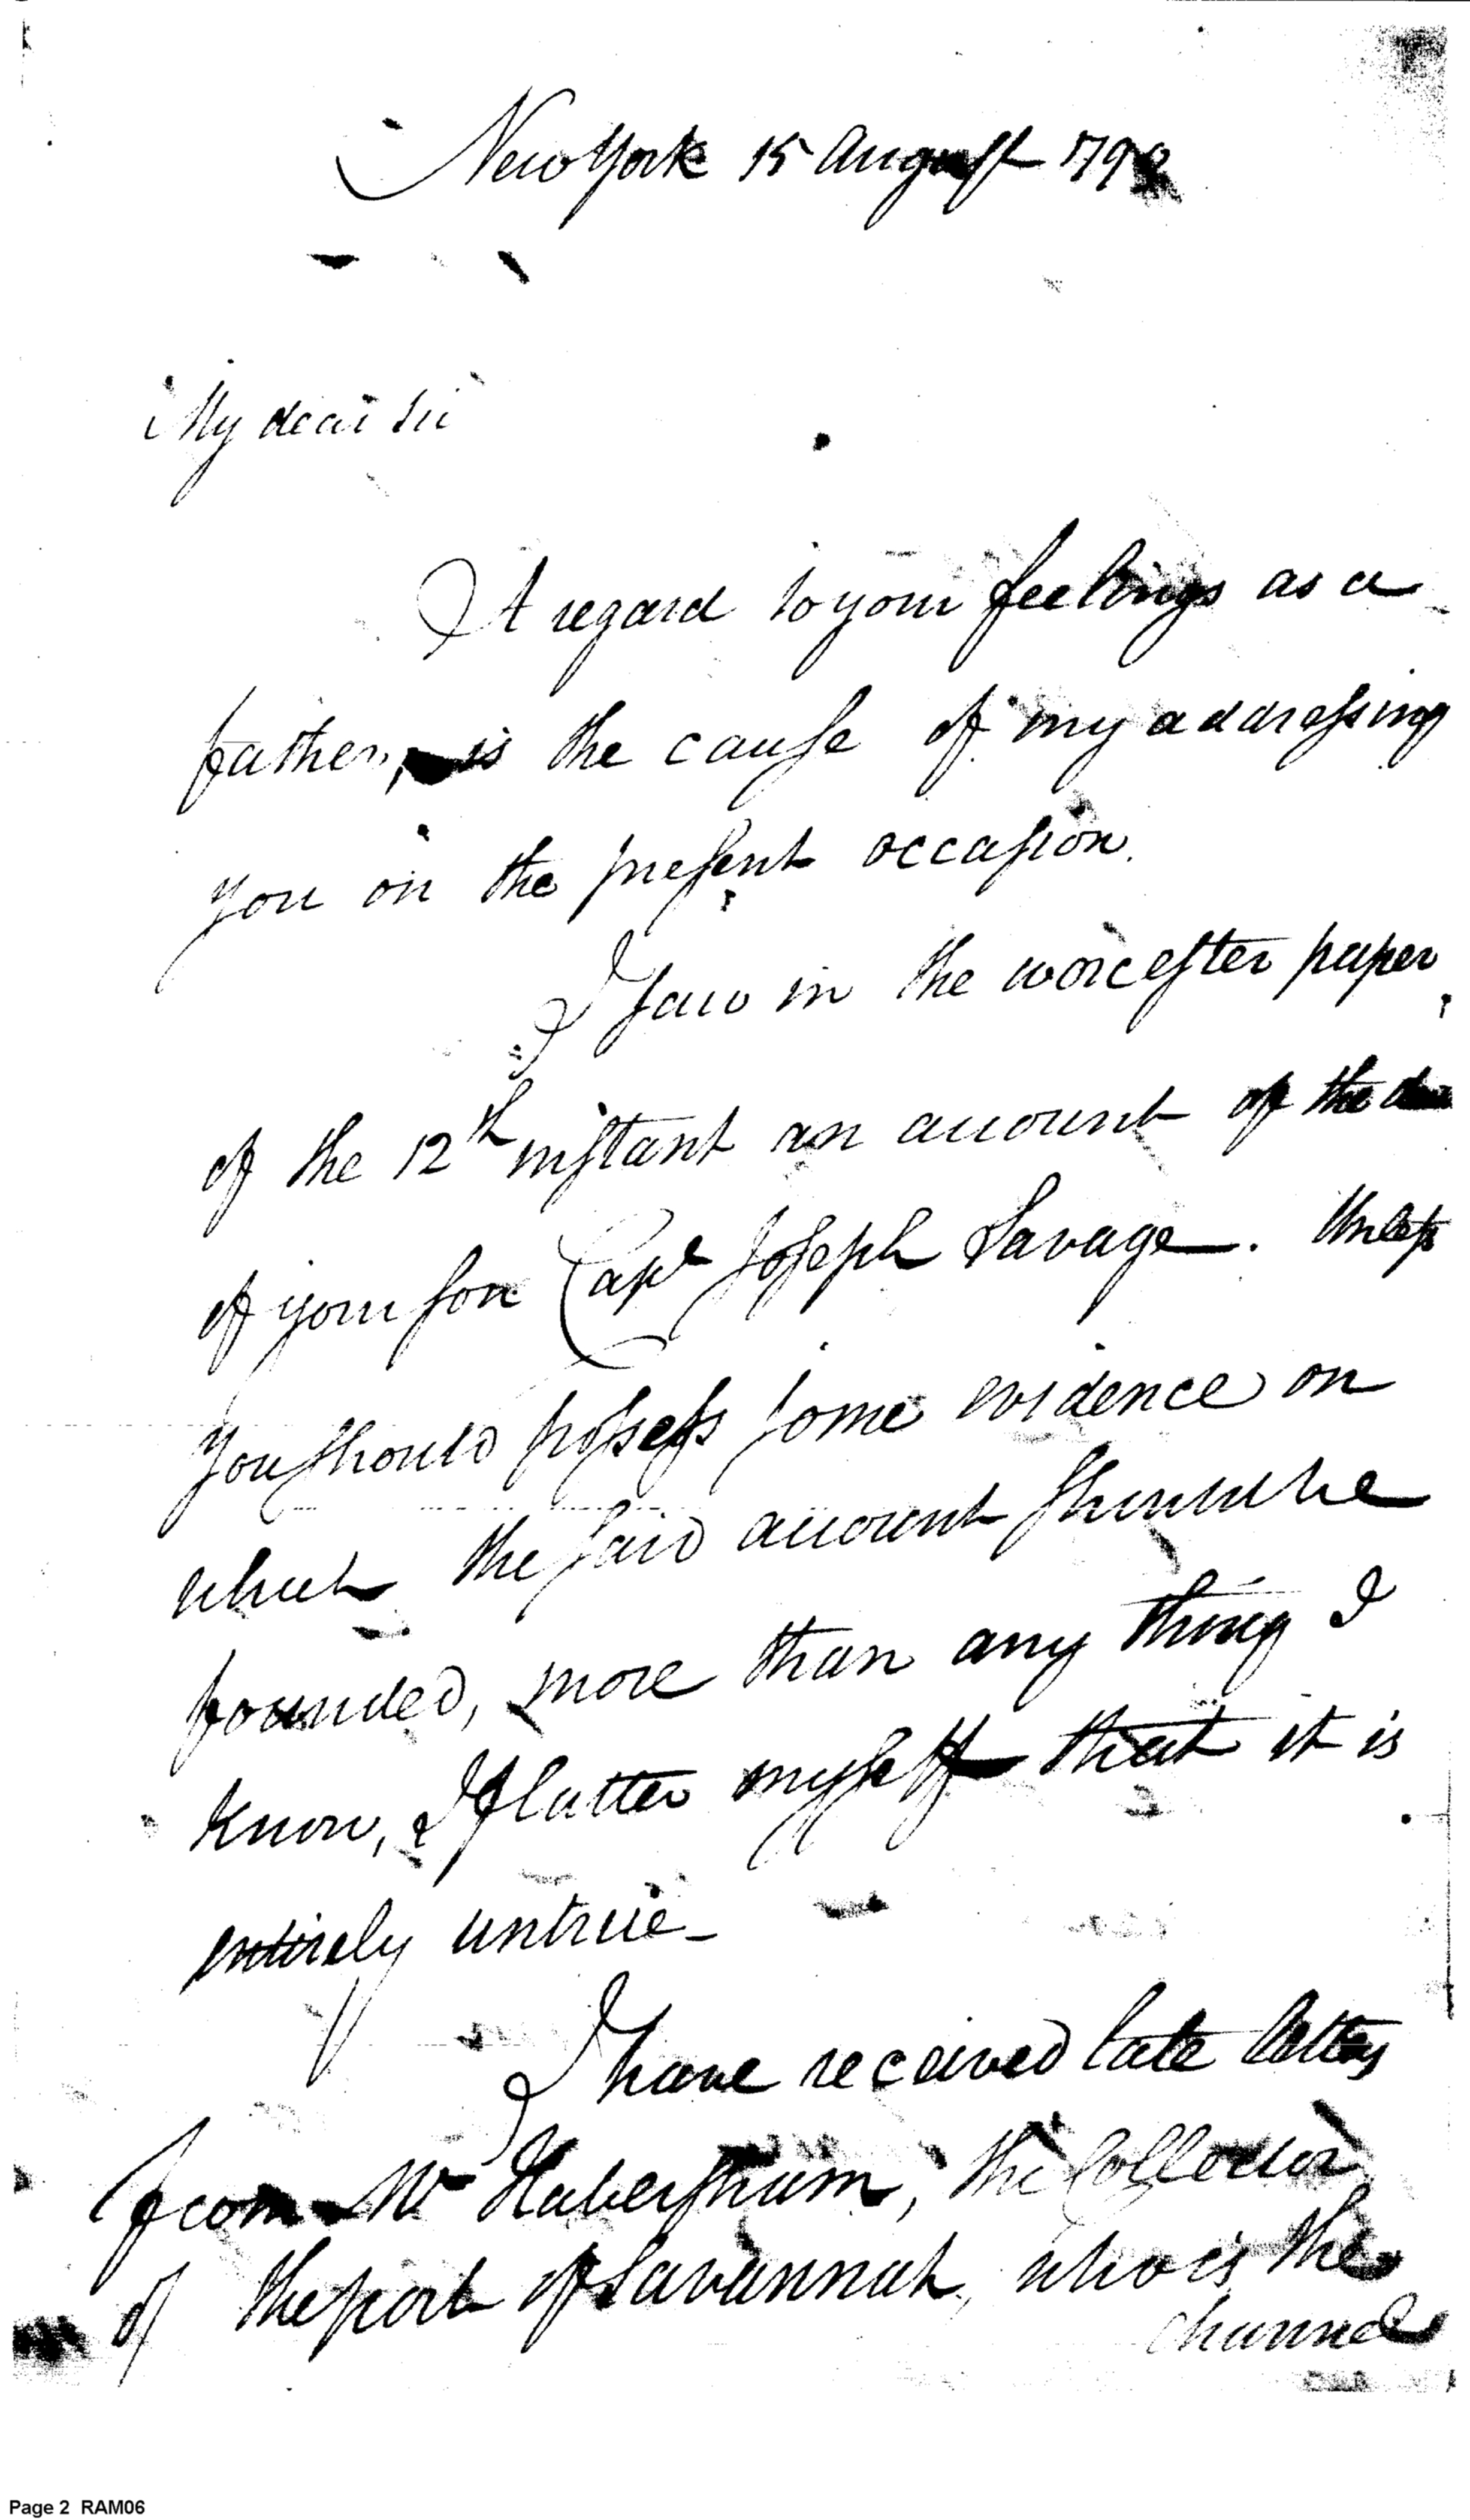 New York 15 August 179
My dear Sir
A regard to your feelings as a
father, is the cause of my addressing
you on the present occasion.
I saw in the worcester paper
of the 12th instant an account of the
of your son Capt Joseph Savage. Unless
you should possess some evidence on
which the said account should be
founded, more than any thing I
know, I flatter myself that it is
entirely untrue—
I have received late letters
from Mr Habersham, the Collector
of the port of Savannah, who is the
channel
Page 2 RAM06